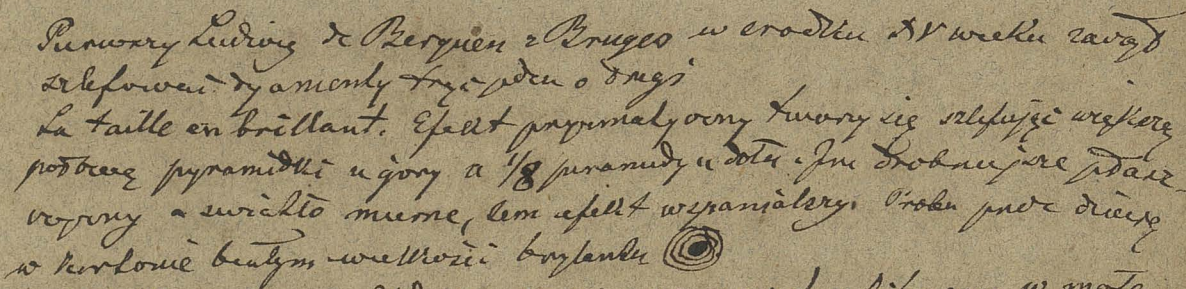 Pierwszy Ludwig de Berquen z Bruges w srodku XV wieku zaczął
szlifować dyamenty trąc jeden o drugi
La taille en brillant. Efekt pryzmatyczny tworzy się szlifując większą
połowę pyramidki u góry a 1/8 piramidy u dołu. Im drobniejsze płasz-
czyzny a światło mierne, tem efekt wspanialszy. Proba przez dziurę
w kartonie białym wielkości brylantu